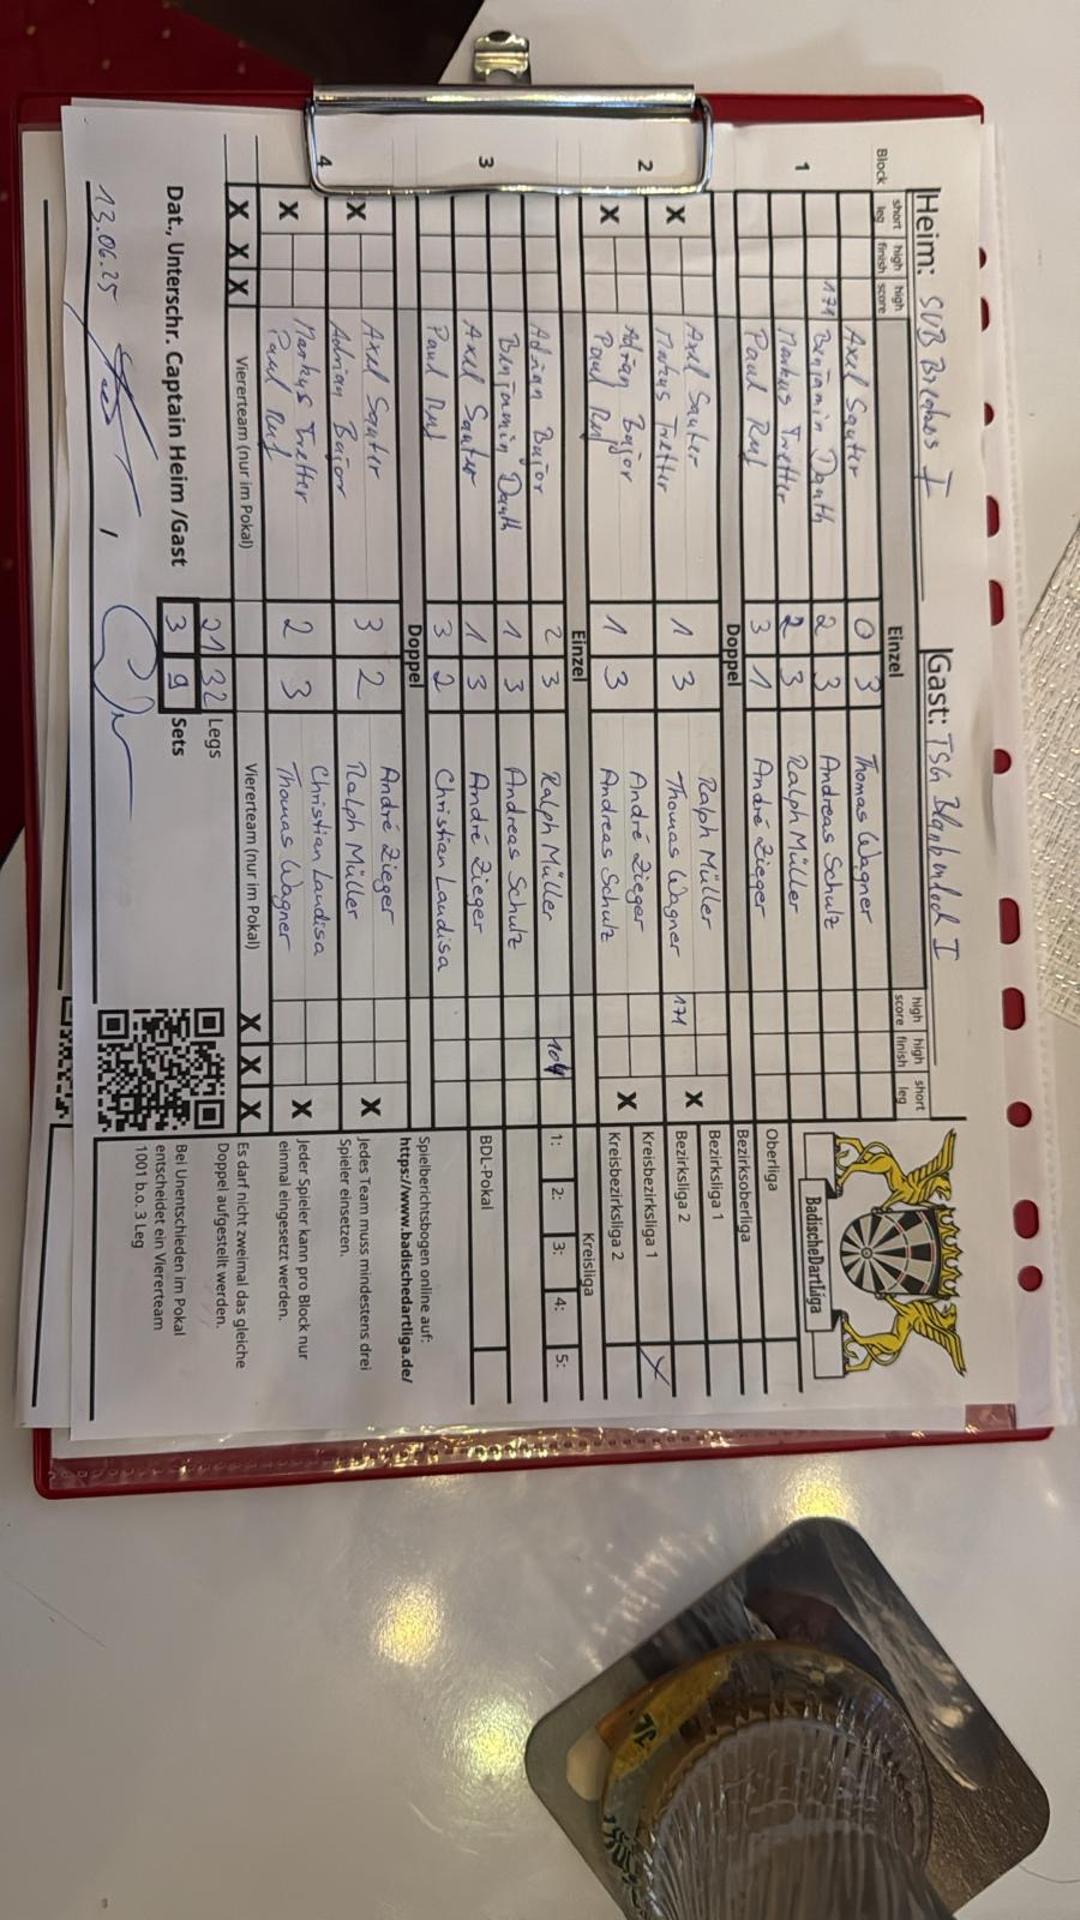 Heim: SVB Brabes I Gast: TSG Blankenloch I
Block short leg high finish high score Einzel high score high finish short leg
1 Axel Sauter 0 3 Thomas Wagner
171 Benjamin Danth 2 3 Andreas Schulz
Markus Tretter 2 3 Ralph Müller
Paul Ruf 3 1 André Zieger
Doppel
2 X Axel Sauter 1 3 Ralph Müller X
Markus Tretter Thomas Wagner 171
X Adrian Bujor 1 3 André Zieger X
Paul Ruf Andreas Schulz
Einzel
3 Adrian Bujor 2 3 Ralph Müller 104
Benjamin Danth 1 3 Andreas Schulz
Axel Sauter 1 3 André Zieger
Paul Ruf 3 2 Christian Laudisa
Doppel
4 X Axel Sauter 3 2 André Zieger X
Adrian Bujor Ralph Müller
X Markus Tretter 2 3 Christian Laudisa X
Paul Ruf Thomas Wagner
X X X Vierterteam (nur im Pokal) Viererteam (nur im Pokal) X X X
21 32 Legs
Dat., Unterschr. Captain Heim /Gast 3 9 Sets
13.06.25 /
BadischeDartLiga
Oberliga
Bezirksoberliga
Bezirksliga 1
Bezirksliga 2
Kreisbezirksliga 1 X
Kreisbezirksliga 2
Kreisliga
1: 2: 3: 4: 5:
BDL-Pokal
Spielberichtsbogen online auf:
https://www.badischedartliga.de/
Jedes Team muss mindestens drei
Spieler einsetzen.
Jeder Spieler kann pro Block nur
einmal eingesetzt werden.
Es darf nicht zweimal das gleiche
Doppel aufgestellt werden.
Bei Unentschieden im Pokal
entscheidet ein Viererteam
1001 b.o. 3 Leg